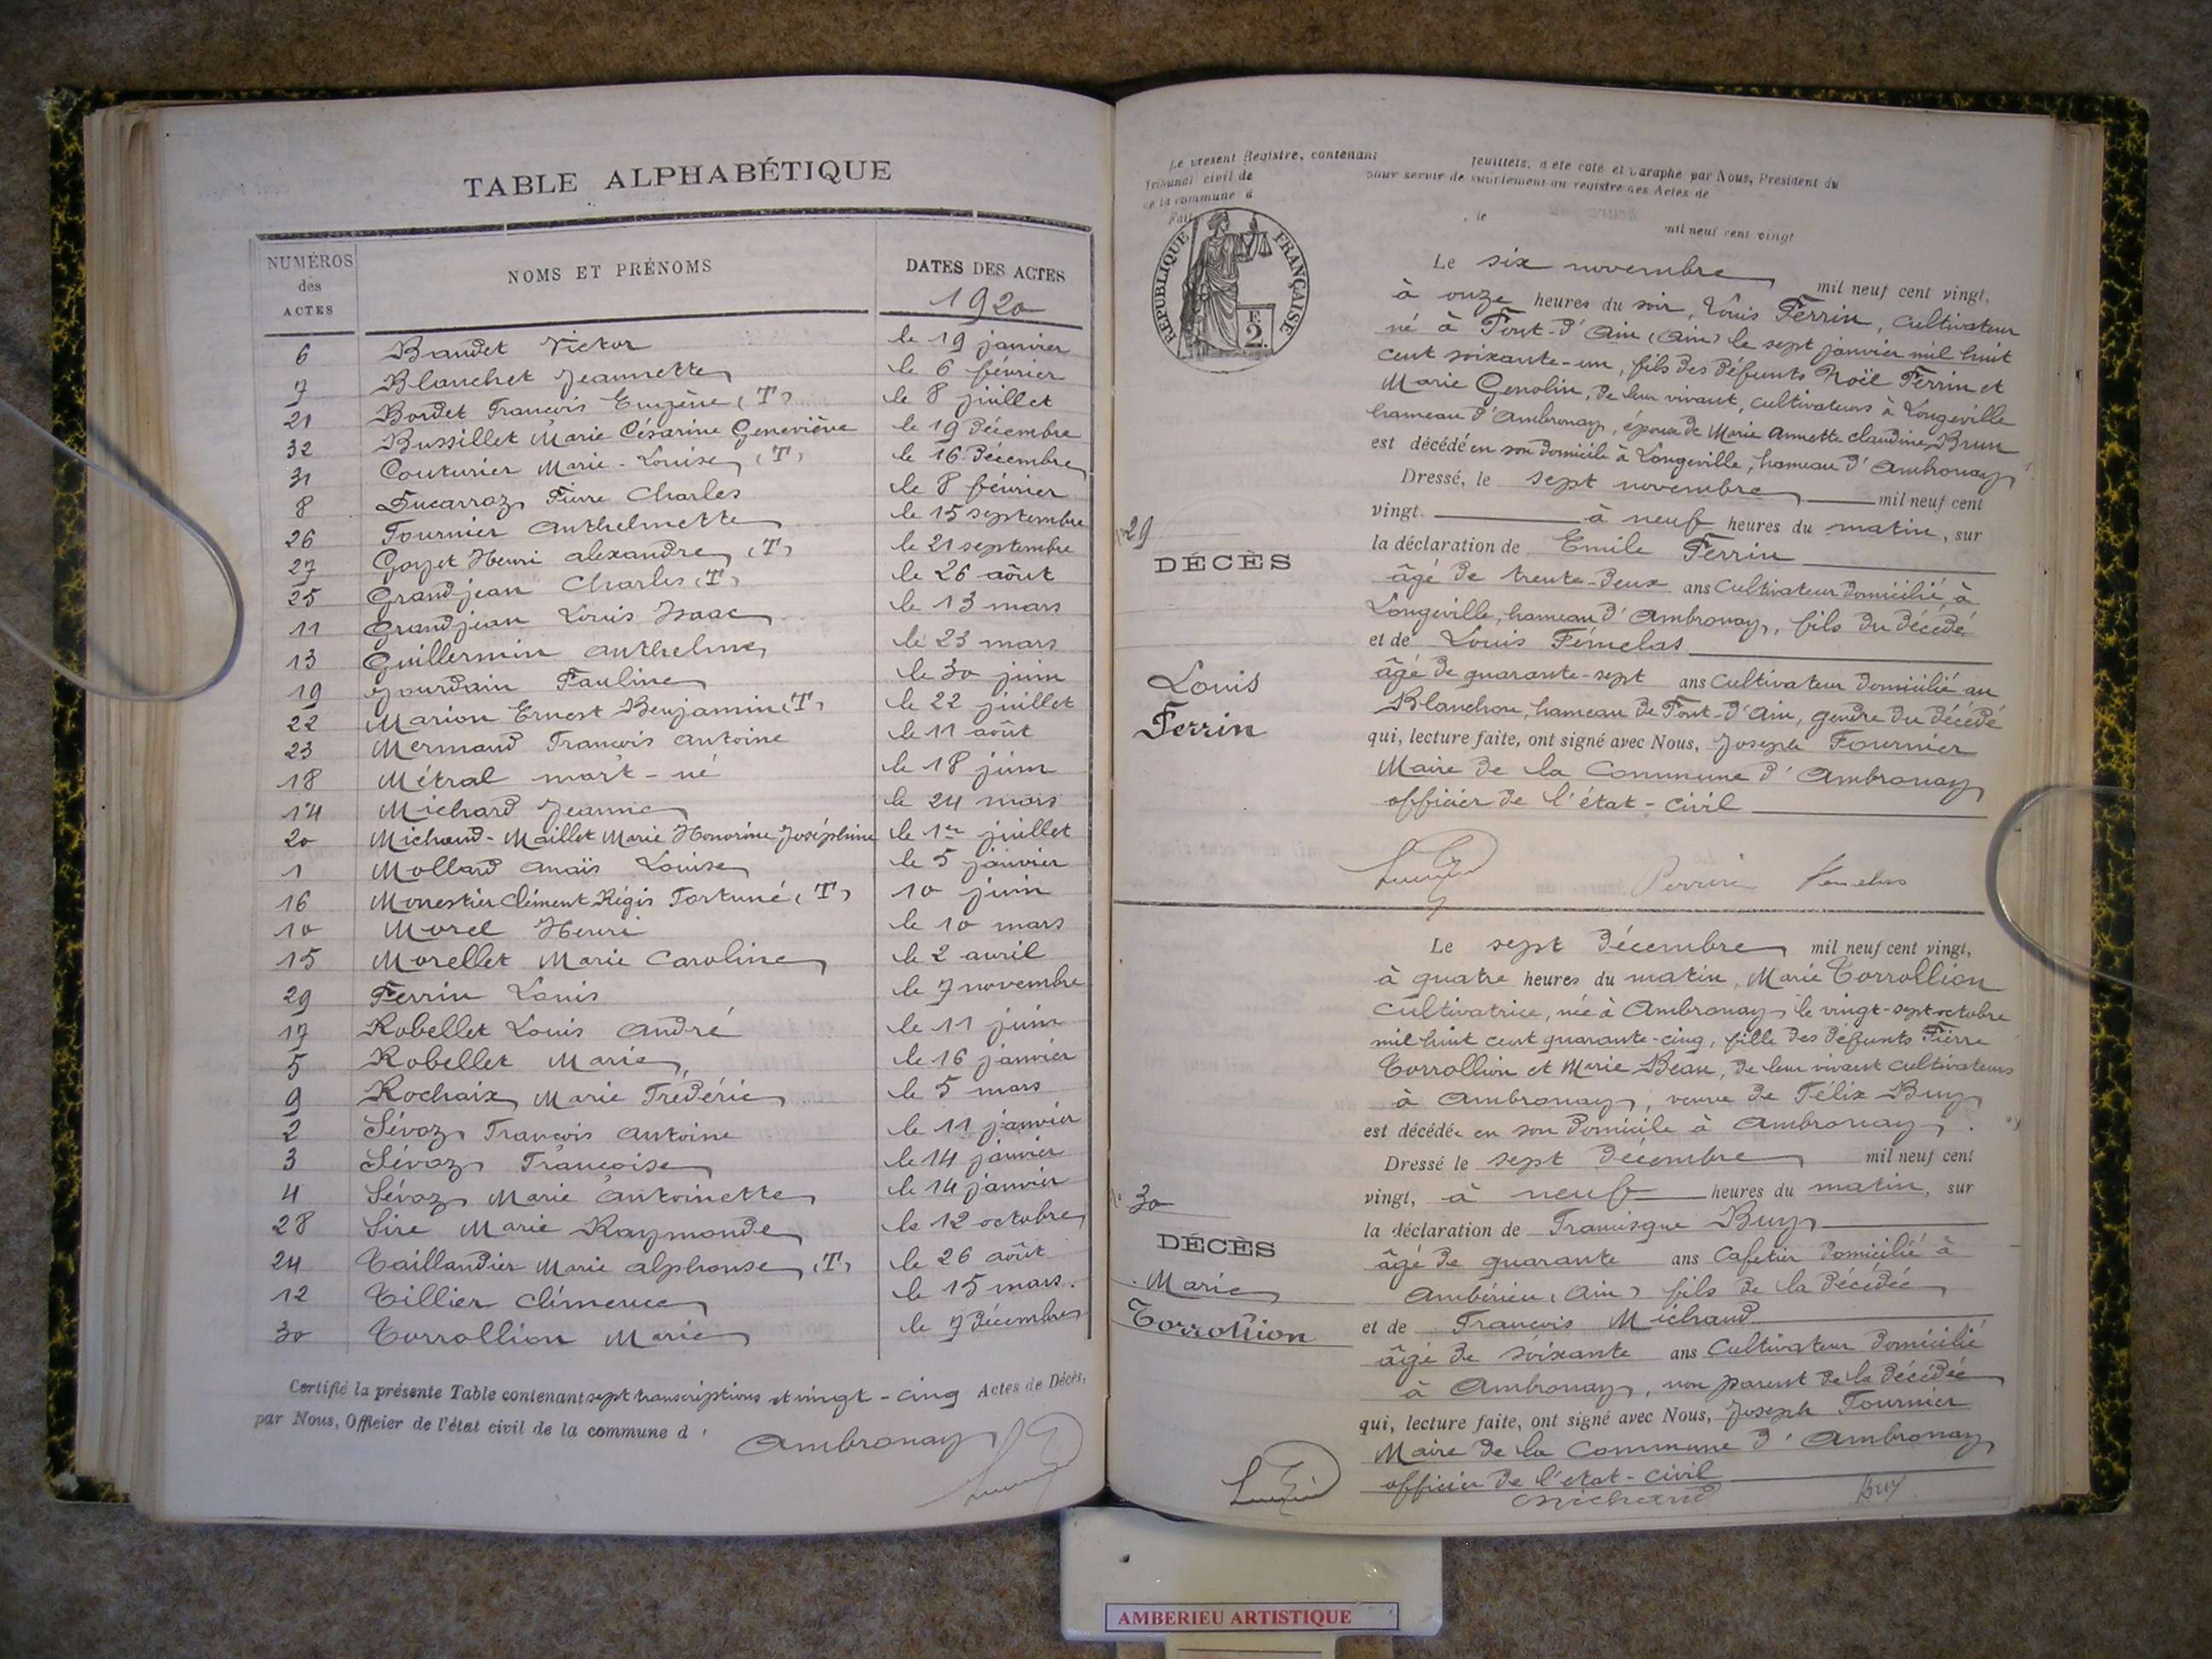 TABLE ALPHABÉTIQUE
NUMÉROS des ACTES
NOMS ET PRÉNOMS
DATES DES ACTES
1920
6 Baudet Victor le 19 janvier
7 Blanchet Jeannette le 6 février
21 Bordet François Eugène (T) le 8 juillet
32 Bussillet Marie Césarine Geneviève le 19 Décembre
31 Couturier Marie-Louise (T) le 16 Décembre
8 Ducarroz Pierre Charles le 8 février
26 Fournier Anthelmette le 15 septembre
27 Goyet Henri Alexandre (T) le 21 septembre
25 Grandjean Charles (T) le 26 août
11 Grandjean Louis Isaac le 13 mars
13 Guillermin Anthelme le 23 mars
19 Jourdain Pauline le 30 juin
22 Marion Ernest Benjamin (T) le 22 juillet
23 Mermand François Antoine le 11 août
18 Métral mort-né le 18 juin
14 Michard Jeanne le 24 mars
20 Michaud-Maillet Marie Honorine Joséphine le 1er juillet
1 Mollard Anaïs Louise le 5 janvier
16 Monestier Clément Régis Fortuné (T) 10 juin
10 Morel Henri le 10 mars
15 Morellet Marie Caroline le 2 avril
29 Perrin Louis le 7 novembre
17 Robellet Louis André le 11 juin
5 Robellet Marie le 16 janvier
9 Rochaix Marie Frédéric le 5 mars
2 Sévoz François Antoine le 11 janvier
3 Sévoz Françoise le 14 janvier
4 Sévoz Marie Antoinette le 14 janvier
28 Sire Marie Raymonde le 12 octobre
24 Taillandier Marie Alphonse (T) le 26 août
12 Tillier Clémence le 15 mars.
30 Torrollion Marie le 7 Décembre
Certifié la présente Table contenant sept transcriptions et vingt-cinq Actes de Décès,
par Nous, Officier de l'état civil de la commune d' Ambronay
Le présent Registre, contenant feuillets, a été coté et paraphé par Nous, Président du
Tribunal civil de pour servir de supplément au registre des Actes de
de la commune d
Fait , le mil neuf cent vingt
RÉPUBLIQUE FRANÇAISE
F.
2.
Le six novembre mil neuf cent vingt,
à onze heures du soir, Louis Perrin, cultivateur
né à Pont-d'Ain (Ain) le sept janvier mil huit
cent soixante-un, fils des défunts Noël Perrin et
Marie Genolin, de leur vivant, cultivateurs à Longeville
hameau d'Ambronay, époux de Marie Annette Claudine Brun
est décédé en son domicile à Longeville, hameau d'Ambronay
Dressé, le sept novembre mil neuf cent
vingt à neuf heures du matin, sur
la déclaration de Emile Perrin
âgé de trente-deux ans cultivateur domicilié à
Longeville, hameau d'Ambronay, fils du décédé
et de Louis Fémelas
âgé de quarante-sept ans cultivateur domicilié au
Blanchon, hameau de Pont-d'Ain, gendre du décédé
qui, lecture faite, ont signé avec Nous, Joseph Fournier
Maire de la Commune d'Ambronay
officier de l'état-civil
N° 29
DÉCÈS
Louis
Perrin
Perrin Femelas
Le sept Décembre mil neuf cent vingt,
à quatre heures du matin, Marie Torrollion
cultivatrice, née à Ambronay le vingt-sept octobre
mil huit cent quarante-cinq, fille des défunts Pierre
Torrollion et Marie Beau, de leur vivant cultivateurs
à Ambronay, veuve de Félix Buy
est décédée en son domicile à Ambronay.
Dressé le sept Décembre mil neuf cent
vingt, à neuf heures du matin, sur
la déclaration de Francisque Buy
âgé de quarante ans Cafetier domicilié à
Ambérieu (Ain) fils de la décédée
et de François Michaud
âgé de soixante ans Cultivateur domicilié
à Ambronay, non parent de la décédée
qui, lecture faite, ont signé avec Nous, Joseph Fournier
Maire de la Commune d'Ambronay
officier de l'état-civil
N° 30
DÉCÈS
Marie
Torrollion
Michaud Buy
AMBERIEU ARTISTIQUE